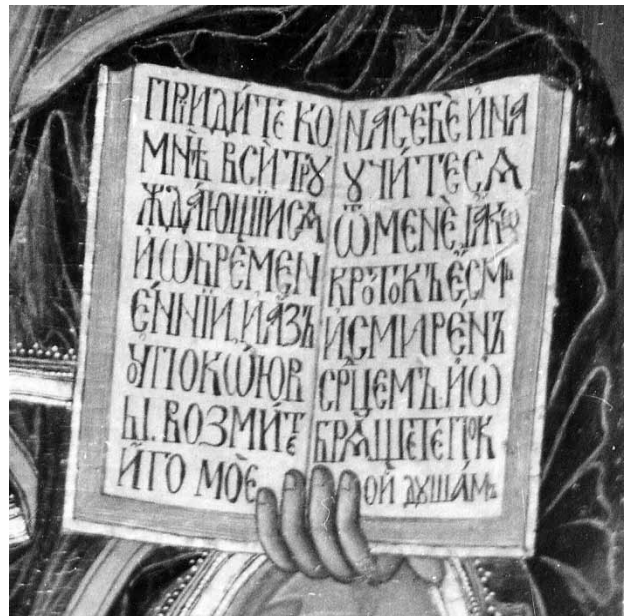 Прїиди́те ко
мнѣ̀ всѝ трꙋ
жда́ющїисѧ
и҆ ѡ҆бреме́н
е́ннїи, и҆ а҆́зъ
ᲂу҆покѡ́ю в
ы̀. возми́те
и҆́го моѐ
на себѐ и҆ на
ꙋчи́тесѧ
ѿ менѐ, ꙗ҆́кѡ
кро́токъ є҆́смь
и҆ смире́нъ
ср҃цемъ: и҆ ѡ҆
брѧ́щете пок
ой дꙋша́мъ